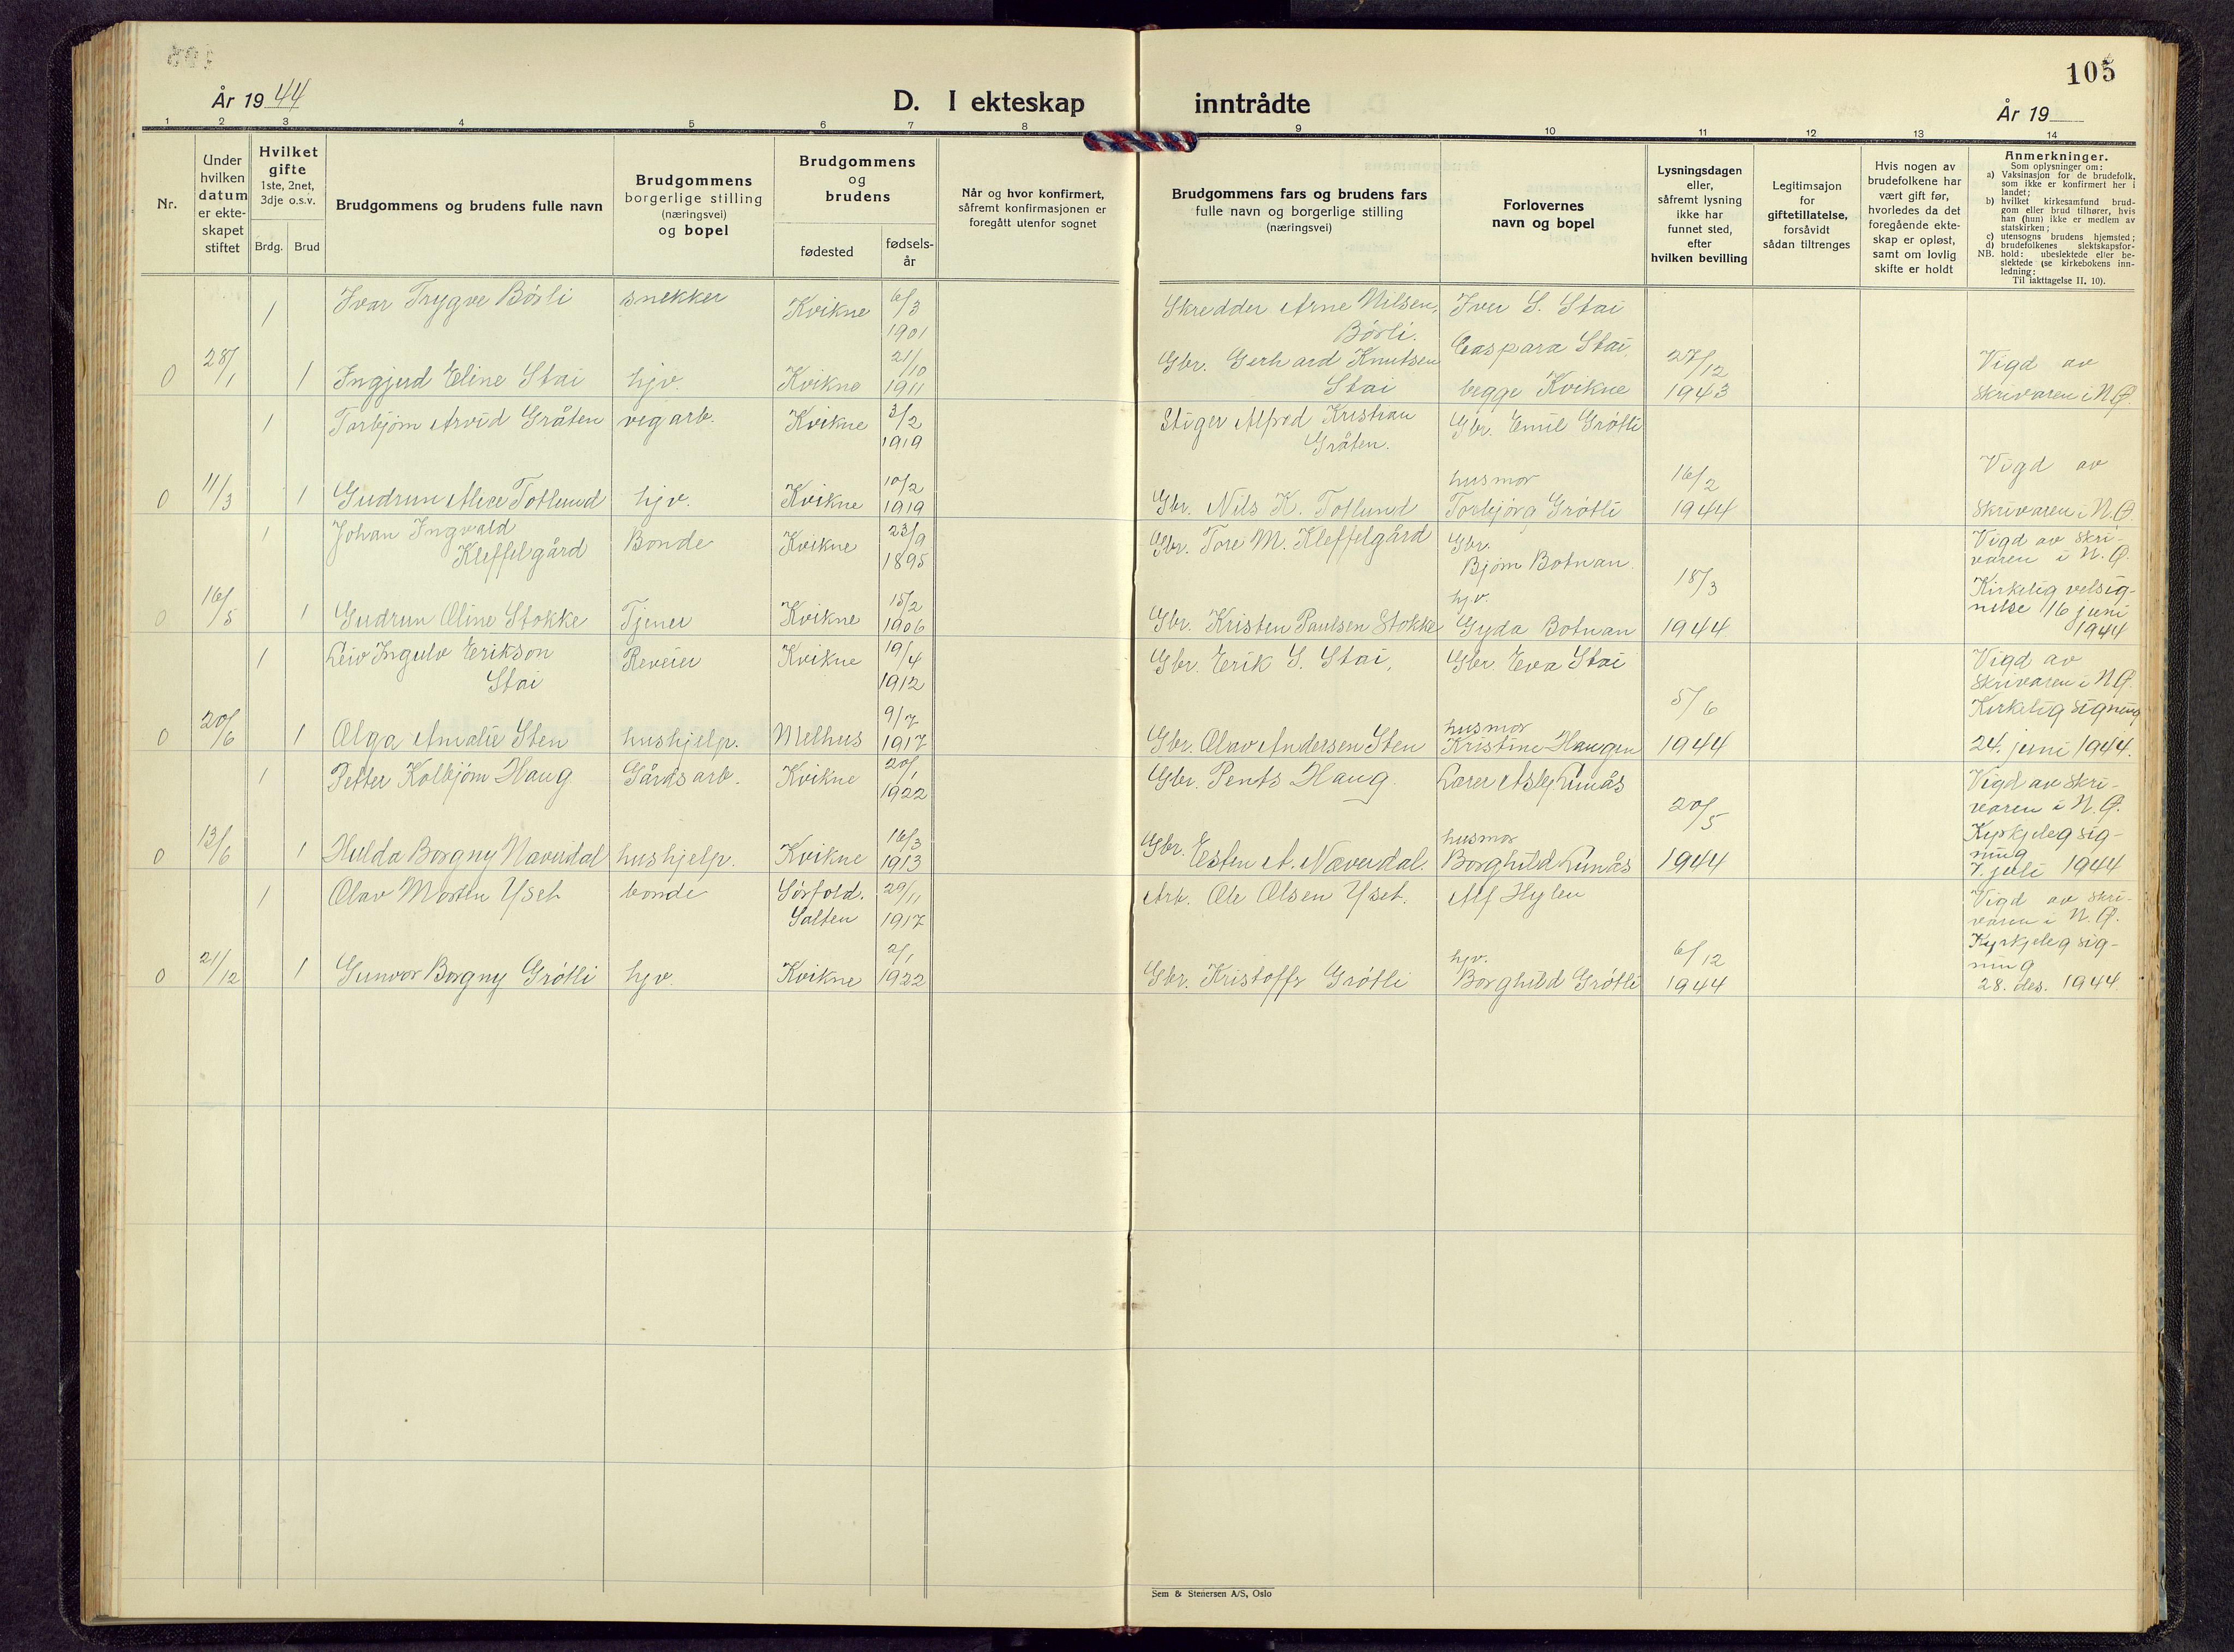 105
År 19 44
D. I ekteskap inntrådte
År 19
1 2 3 4 5 6 7 8 9 10 11 12 13 14
Nr.
Under
hvilken
datum
er ekte-
skapet
stiftet
Hvilket
gifte
1ste, 2net,
3dje o.s.v.
Brdg. Brud
Brudgommens og brudens fulle navn
Brudgommens
borgerlige stilling
(næringsvei)
og bopel
Brudgommens
og
brudens
fødested
fødsels-
år
Når og hvor konfirmert,
såfremt konfirmasjonen er
foregått utenfor sognet
Brudgommens fars og brudens fars
fulle navn og borgerlige stilling
(næringsvei)
Forlovernes
navn og bopel
Lysningsdagen
eller,
såfremt lysning
ikke har
funnet sted,
efter
hvilken bevilling
Legitimsajon
for
giftetillatelse,
forsåvidt
sådan tiltrenges
Hvis nogen av
brudefolkene har
vært gift før,
hvorledes da det
foregående ekte-
skap er opløst,
samt om lovlig
skifte er holdt
Anmerkninger.
Som oplysninger om:
a) Vaksinasjon for de brudefolk,
som ikke er konfirmert her i
landet;
b) hvilket kirkesamfund brud-
gom eller brud tilhører, hvis
han (hun) ikke er medlem av
statskirken;
c) utensogns brudens hjemsted;
d) brudefolkenes slektskapsfor-
NB. hold: ubeslektede eller be-
slektede (se kirkebokens inn-
ledning:
Til iakttagelse II. 10).
1 Ivar Trygve Børli snekker Kvikne 6/3 1901
Skredder Arne Nilsen Børli. Iver S. Stai
0 28/1 1 Ingjerd Eline Stai hjv. Kvikne 21/10 1911
Gbr. Gerhard Knutsen Stai Caspara Stai, begge Kvikne 27/12 1943
Vigd av
skrivaren i N.Ø.
1 Torbjørn Arvid Gråten vegarb. Kvikne 3/2 1919
Stiger Alfred Kristian Gråten. Gbr. Emil Grøtli
0 11/3 1 Gudrun Alice Totlund hjv. Kvikne 10/2 1919
Gbr. Nils K. Totlund husmor Torbjørg Grøtli 16/2 1944
Vigd av
skrivaren i N.Ø.
1 Johan Ingvald Kleffelgård Bonde Kvikne 23/9 1895
Gbr. Tore M. Kleffelgård Gbr. Bjørn Botnan.
0 16/5 1 Gudrun Oline Stokke Tjener Kvikne 15/2 1906
Gbr. Kristen Paulsen Stokke hjv. Gyda Botnan 18/3 1944
Vigd av skri-
varen i N.Ø.
Kirkelig velsig-
nelse 16 juni
1944
1 Leiv Ingulv Erikson Stai Reveier Kvikne 19/4 1912
Gbr. Erik S. Stai, Gbr. Eva Stai
0 20/6 1 Olga Amalie Sten hushjelp. Melhus 9/7 1917
Gbr. Olav Andersen Sten husmor Kristine Haugen 5/6 1944
Vigd av
skrivaren i N.Ø.
Kirkelig signing
24. juni 1944.
1 Petter Kolbjørn Haug Gårdsarb. Kvikne 20/1 1922
Gbr. Pents Haug Lærer Asbj. Lunås
0 13/6 1 Hulda Borgny Næverdal hushjelp. Kvikne 16/3 1913
Gbr. Esten A. Næverdal. husmor Borghild Lunås 20/5 1944
Vigd av skri-
varen i N.Ø.
Kyrkjeleg sig-
ning
7. juli 1944
1 Olav Morten Yset bonde Sørfold. Salten 29/11 1917
Arb. Ole Olsen Yset. Alf Hylen
0 21/12 1 Gunvor Borgny Grøtli hjv. Kvikne 2/1 1922
Gbr. Kristoffr Grøtli hjv. Borghild Grøtli 6/12 1944
Vigd av skri-
varen i N.Ø.
Kyrkjeleg sig-
ning
28. des. 1944
Sem & Stenersen A/S, Oslo